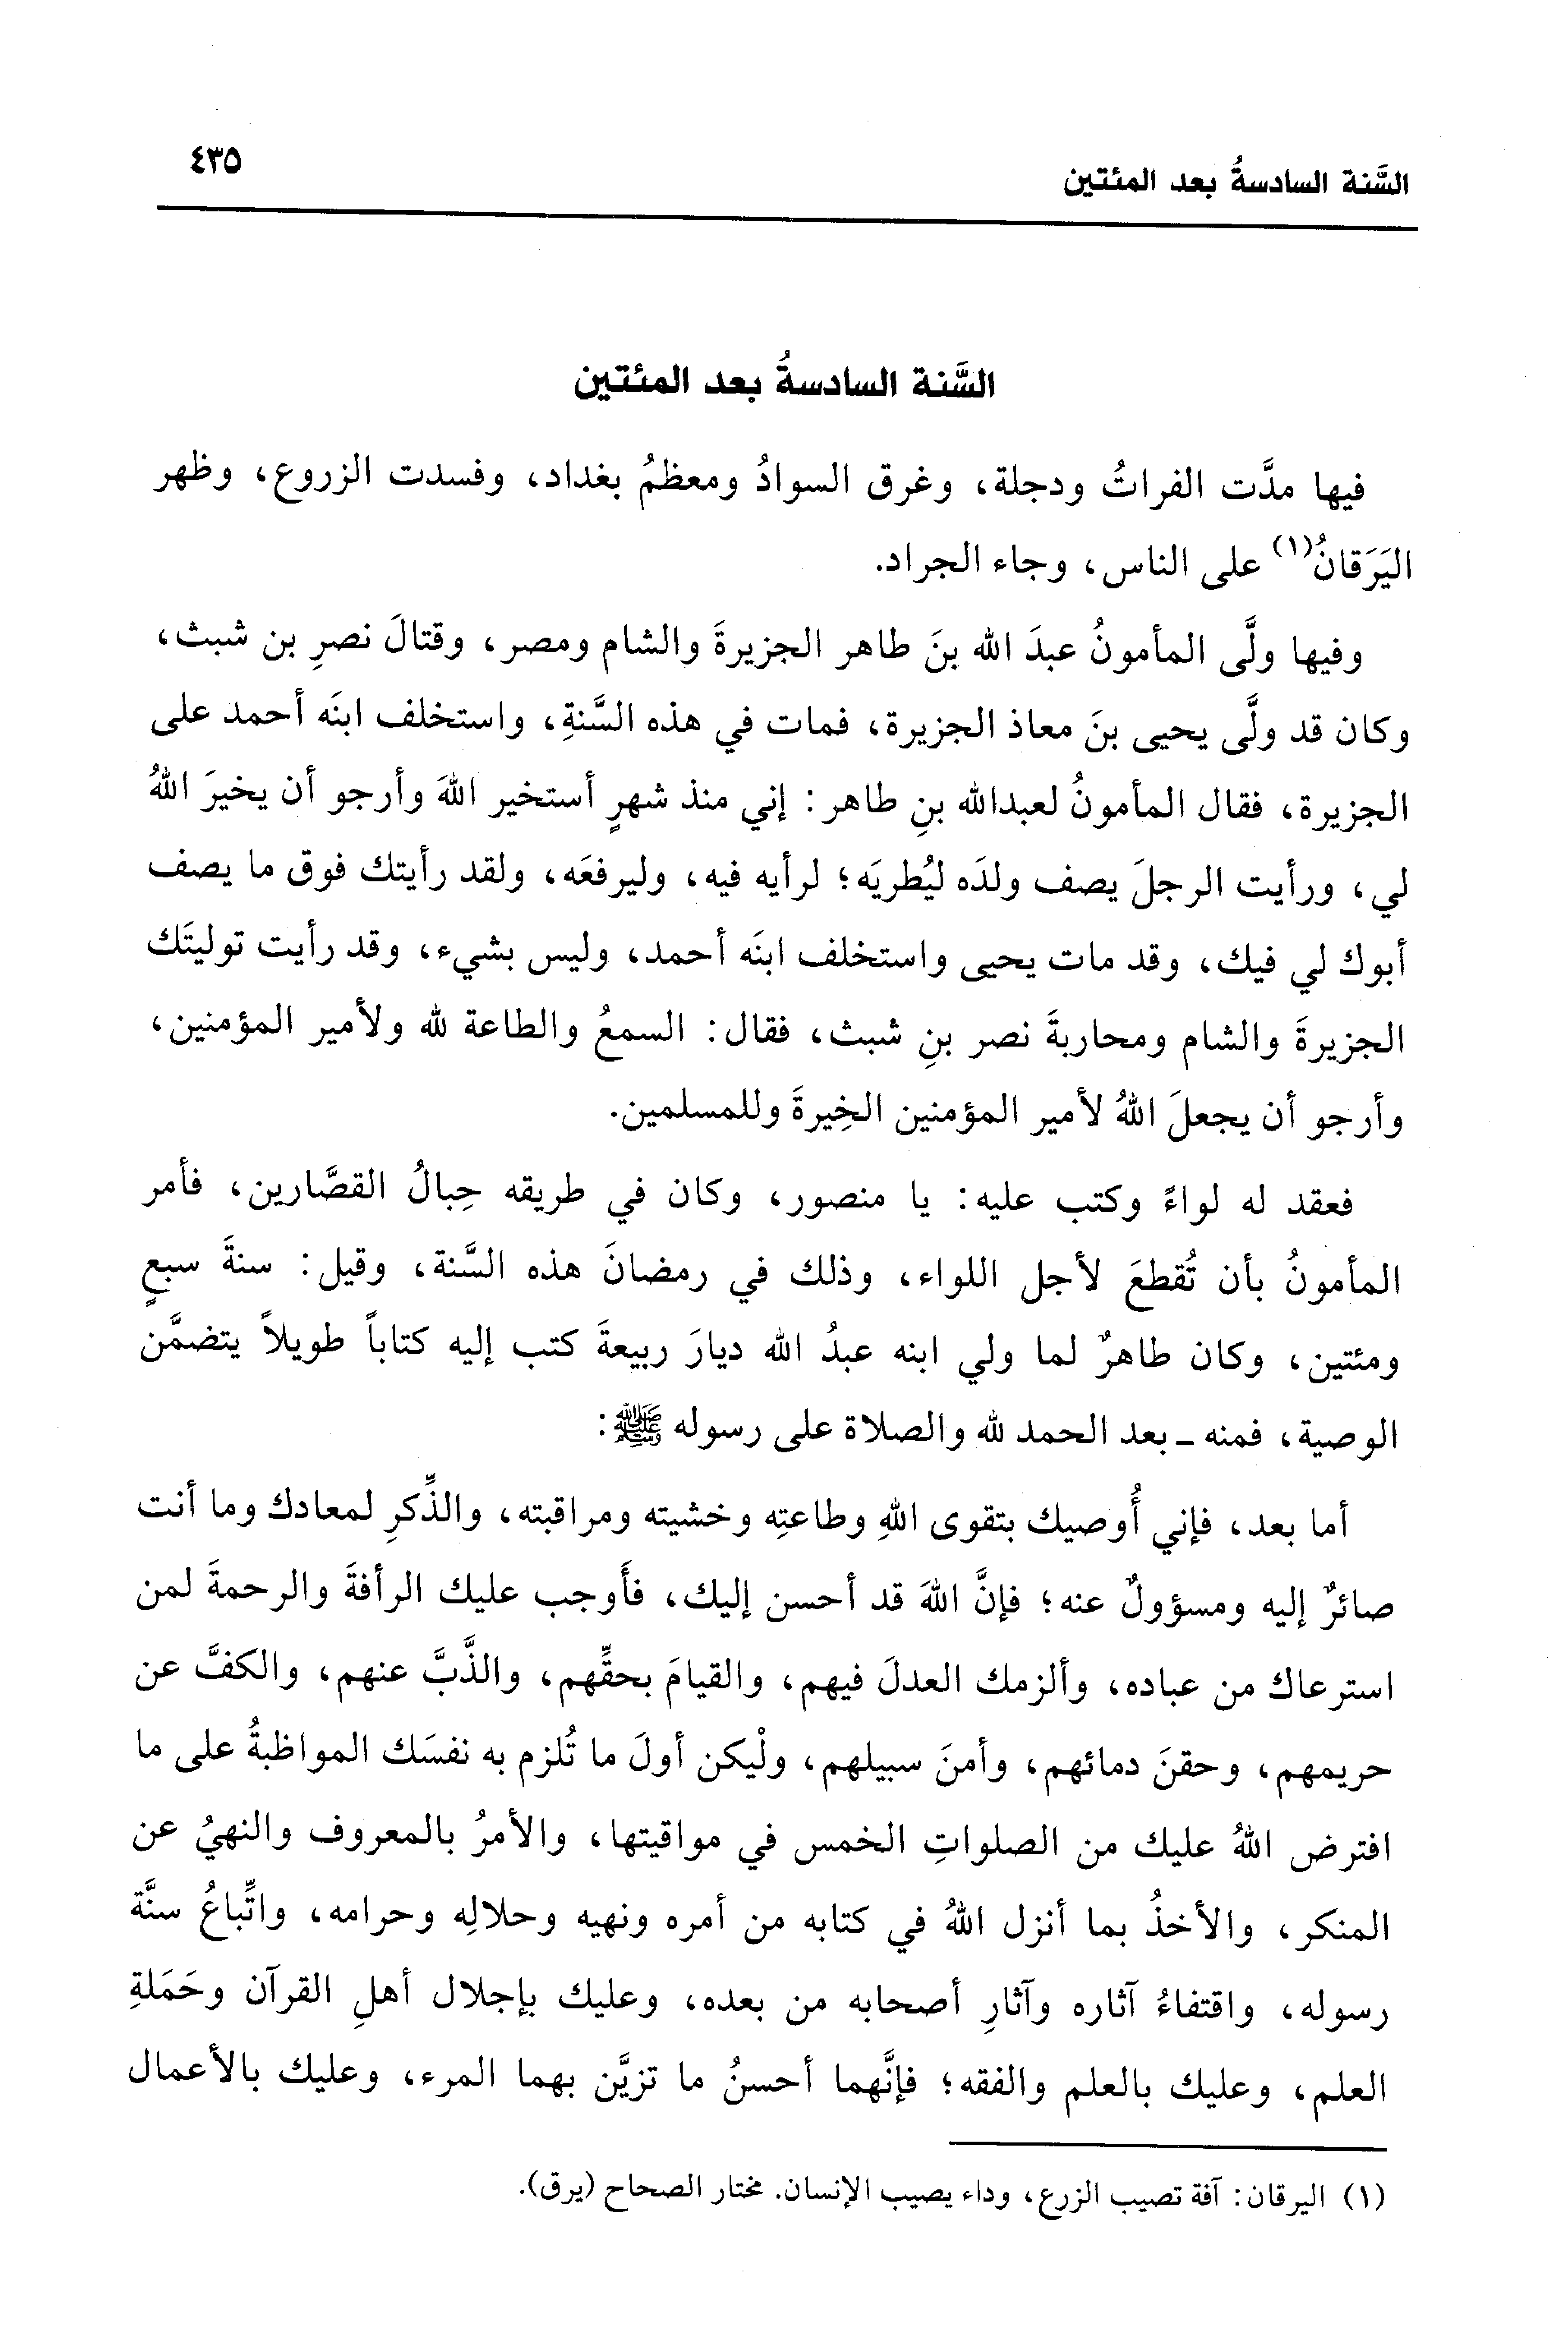 السَّنة السادسةُ بعد المئتين
٤٣٥
السَّنة السادسةُ بعد المئتين
فيها مدَّت الفراتُ ودجلة، وغرق السوادُ ومعظمُ بغداد، وفسدت الزروع، وظهر
اليَرَقانُ(١) على الناس، وجاء الجراد.
وفيها ولَّى المأمونُ عبدَ الله بنَ طاهر الجزيرةَ والشام ومصر، وقتالَ نصرِ بن شبث،
وكان قد ولَّى يحيى بنَ معاذ الجزيرة، فمات في هذه السَّنةِ، واستخلف ابنَه أحمد على
الجزيرة، فقال المأمونُ لعبدالله بنِ طاهر: إني منذ شهرٍ أستخير اللهَ وأرجو أن يخيرَ اللهُ
لي، ورأيت الرجلَ يصف ولدَه ليُطريَه؛ لرأيه فيه، وليرفعَه، ولقد رأيتك فوق ما يصف
أبوك لي فيك، وقد مات يحيى واستخلف ابنَه أحمد، وليس بشيء، وقد رأيت توليتَك
الجزيرةَ والشام ومحاربةَ نصر بنِ شبث، فقال: السمعُ والطاعة لله ولأمير المؤمنين،
وأرجو أن يجعلَ اللهُ لأمير المؤمنين الخِيرةَ وللمسلمين.
فعقد له لواءً وكتب عليه: يا منصور، وكان في طريقه حِبالُ القصَّارين، فأمر
المأمونُ بأن تُقطعَ لأجل اللواء، وذلك في رمضانَ هذه السَّنة، وقيل: سنةَ سبعٍ
ومئتين، وكان طاهرٌ لما ولي ابنه عبدُ الله ديارَ ربيعةَ كتب إليه كتاباً طويلاً يتضمَّن
الوصية، فمنه ـ بعد الحمد لله والصلاة على رسوله ﷺ:
أما بعد، فإني أُوصيك بتقوى اللهِ وطاعتِه وخشيته ومراقبته، والذِّكرِ لمعادك وما أنت
صائرٌ إليه ومسؤولٌ عنه؛ فإنَّ اللهَ قد أحسن إليك، فأَوجب عليك الرأفةَ والرحمةَ لمن
استرعاك من عباده، وألزمك العدلَ فيهم، والقيامَ بحقِّهم، والذَّبَّ عنهم، والكفَّ عن
حريمهم، وحقنَ دمائهم، وأمنَ سبيلهم، ولْيكن أولَ ما تُلزم به نفسَك المواظبةُ على ما
افترض اللهُ عليك من الصلواتِ الخمس في مواقيتها، والأمرُ بالمعروف والنهيُ عن
المنكر، والأخذُ بما أنزل اللهُ في كتابه من أمره ونهيه وحلالِه وحرامه، واتِّباعُ سنَّة
رسوله، واقتفاءُ آثاره وآثارِ أصحابه من بعده، وعليك بإجلال أهلِ القرآن وحَمَلةِ
العلم، وعليك بالعلم والفقه؛ فإنَّهما أحسنُ ما تزيَّن بهما المرء، وعليك بالأعمال
(١) اليرقان: آفة تصيب الزرع، وداء يصيب الإنسان. مختار الصحاح (يرق).